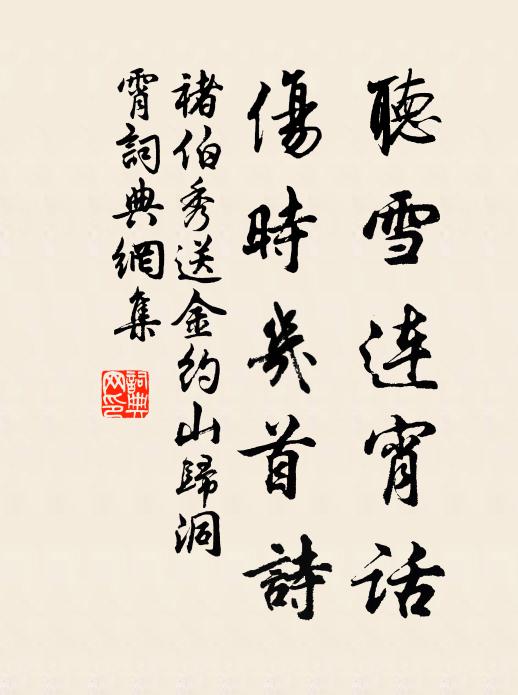 聽雪連宵話
傷時幾首詩
褚伯秀送金約山歸洞
霄詞典網集
詞典
网印